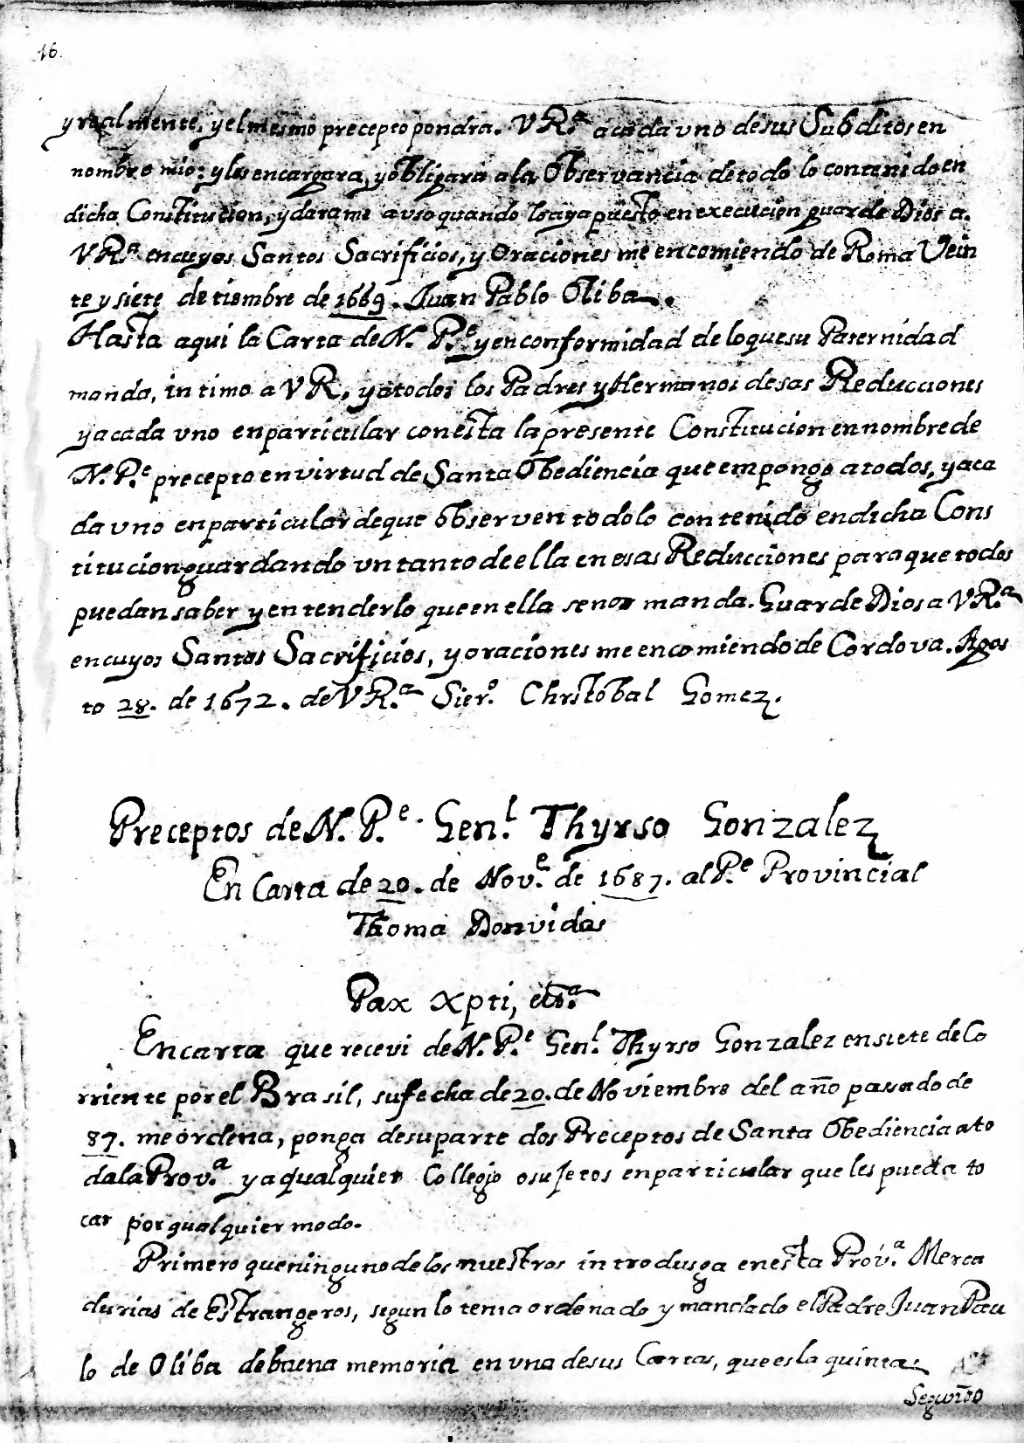 16.
y realmente, y el mesmo precepto pondra. V R.ª a cada uno de sus Subditos en
nombre mio; y les encargara, y obligara a la Observancia de todo lo contenido en
dicha Constitucion, y darame aviso quando lo aya puesto en execucion guarde Dios a.
V Rª en cuyos Santos Sacrificios, y Oraciones me encomiendo de Roma Vein
te y siete de tiembre de 1669. Juan Pablo Oliba.
Hasta aqui la Carta de N. P.e y en conformidad de lo que su Paternidad
manda, intimo a V R. y a todos los Padres y Hermanos de sas Reducciones
y a cada vno en particular con esta la presente Constitucion en nombre de
N. P.e precepto en virtud de Santa Obediencia que em pongo a todos, y a ca
da vno en particular de que observen todo lo contenido en dicha Cons
titucion guardando vn tanto de ella en esas Reducciones para que todos
puedan saber y entenderlo que en ella se nos manda. Guarde Dios a V R.ª
en cuyos Santos Sacrificios, y oraciones me encomiendo de Cordova. Agos
to 28. de 1672. de V R.ª Sier.o Christobal Gomez.
Preceptos de N. P.e Gen.l Thyrso Gonzalez
En Carta de 20. de Nov.e de 1687. al P.e Provincial
Thoma Donvidas
Pax Xpti, etc.ª
En carta que recevi de N. P.e Gen.l Thyrso Gonzalez en siete de Co
rriente por el Brasil, su fecha de 20. de Noviembre del año pasado de
87. me ordena, ponga de su parte dos Preceptos de Santa Obediencia a to
da la Prov.ª y a qualquier Collegio o sujetos en particular que les pueda to
car por qualquier modo.
Primero que ninguno de los nuestros introdusga en esta Prov.ª Merca
durias de Estrangeros, segun lo tenia ordenado y mandado el Padre Juan Pau
lo de Oliba de buena memoria en vna de sus Cartas, que es la quinta
Segundo